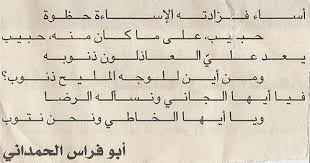 أساء فزادته الإساءة حظوة
حبيب، على ما كان منه، حبيب
يعد عليّ العاذلون ذنوبه
ومن أين للوجه المليح ذنوب؟
فيا أيها الجاني ونسأله الرضا
ويا أيها الخاطي ونحن نتوب
أبو فراس الحمداني